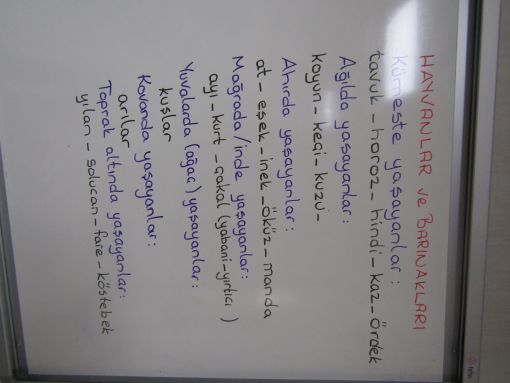 HAYVANLAR ve BARINAKLARI
Kümeste yaşayanlar:
tavuk - horoz - hindi - kaz - ördek
Ağılda yaşayanlar:
koyun - keçi - kuzu -
Ahırda yaşayanlar:
at - eşek - inek - öküz - manda
Mağrada/inde yaşayanlar:
ayı - kurt - çakal (yabani-yırtıcı)
Yuvalarda (ağaç) yaşayanlar:
kuşlar
Kovanda yaşayanlar:
arılar
Toprak altında yaşayanlar:
yılan - solucan - fare - köstebek